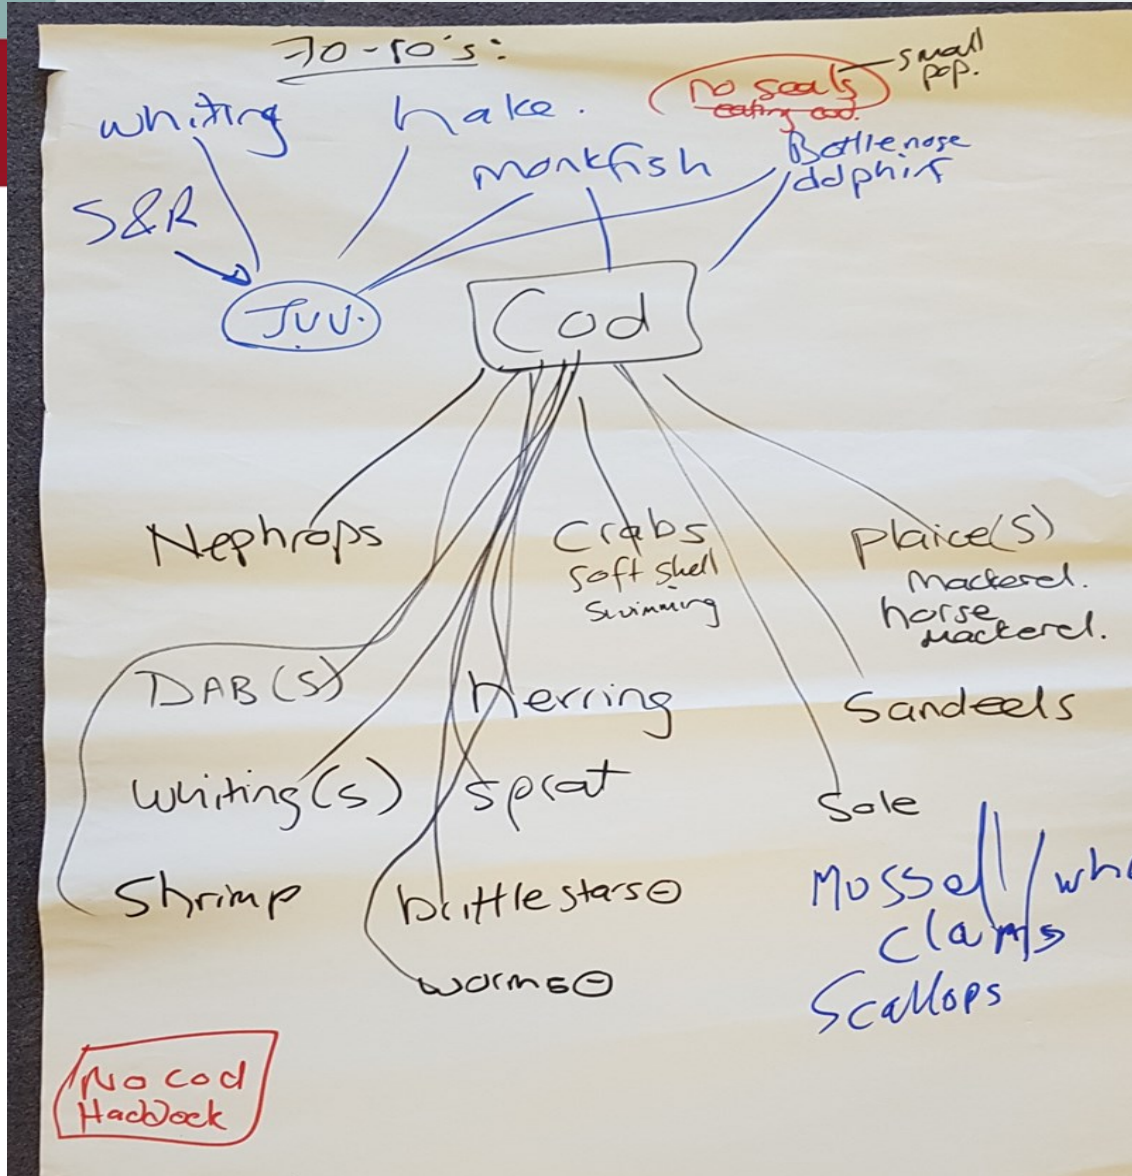 70-80's:
small
pop.
no seals
eating cod.
whiting
hake.
monkfish
Bottlenose
dolphin
S&R
Juv.
Cod
Nephrops
Crabs
soft shell
Swimming
plaice(s)
Mackerel.
horse
Mackerel.
DAB(s)
Herring
Sandeels
whiting(s)
sprat
Sole
Shrimp
brittlestars⊖
Mussel/
clams
Scallops
worms⊖
No cod
Haddock